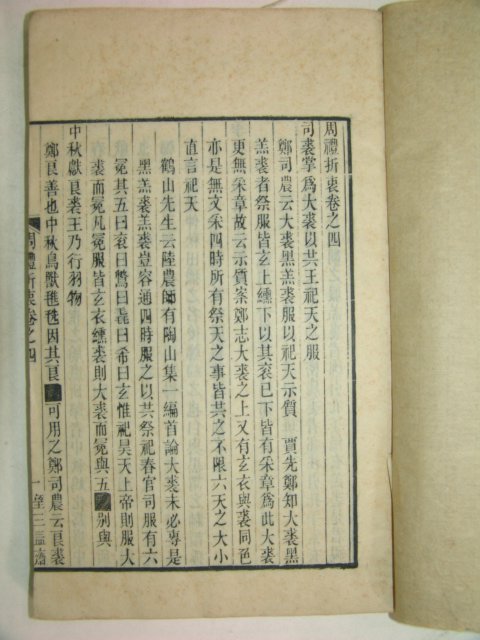 周禮折衷卷之四
司裘掌爲大裘以共王祀天之服
鄭司農云大裘黑羔裘服以祀天示質　賈先鄭知大裘黑
羔裘者祭服皆玄上纁下以其衮已下皆有采章爲此大裘
更無采章故云示質案鄭志大裘之上又有玄衣與裘同色
亦是無文采四時所有祭天之事皆共之不限六天之大小
直言祀天
鶴山先生云陸農師有陶山集一編首論大裘未必專是
黑羔裘豈容通四時服之以共祭祀春官司服有六
冕其五曰衮曰鷩曰毳曰希曰玄惟祀昊天上帝則服大
裘而冕凡冕服皆玄衣纁裳則大裘而冕與五別與
中秋獻良裘王乃行羽物
鄭良善也中秋鳥獸毨毨因其良可用之鄭司農云良裘
周禮折衷卷之四
一